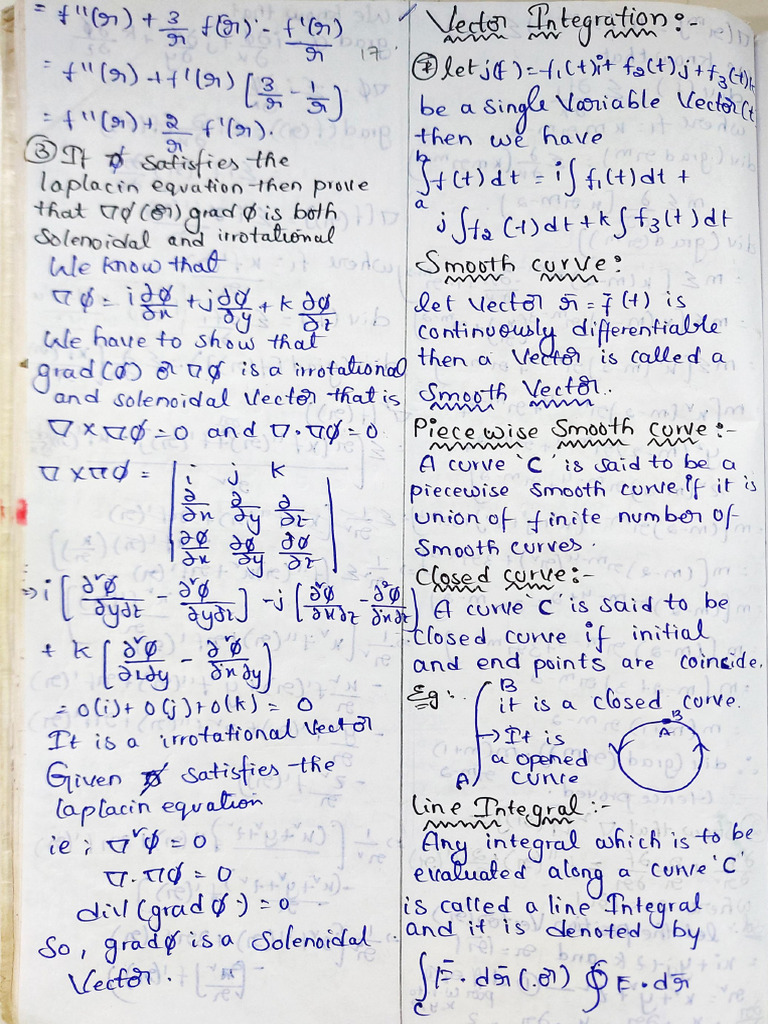 = f''(r) + 3/r f(r) - f'(r)/r
17.
= f''(r) + f'(r) [3/r - 1/r]
= f''(r) + 2/r f'(r).
③ If ϕ satisfies the
laplacin equation then prove
that ∇ϕ (or) grad ϕ is both
Solenoidal and irrotational
We know that
∇ϕ = i ∂ϕ/∂x + j ∂ϕ/∂y + k ∂ϕ/∂z
We have to show that
grad(ϕ) or ∇ϕ is a irrotational
and solenoidal vector that is
∇ × ∇ϕ = 0 and ∇·∇ϕ = 0
∇ × ∇ϕ = | i j k
∂/∂x ∂/∂y ∂/∂z
∂ϕ/∂x ∂ϕ/∂y ∂ϕ/∂z |
⇒ i [∂²ϕ/∂y∂z - ∂²ϕ/∂y∂z] - j [∂²ϕ/∂x∂z - ∂²ϕ/∂x∂z]
+ k [∂²ϕ/∂x∂y - ∂²ϕ/∂x∂y]
= 0(i) + 0(j) + 0(k) = 0
It is a irrotational vector
Given ϕ satisfies the
laplacin equation
ie; ∇²ϕ = 0
∇·∇ϕ = 0
div(grad ϕ) = 0
So, grad ϕ is a Solenoidal
Vector.
Vector Integration:-
let f(t) = f₁(t)i + f₂(t)j + f₃(t)k
be a single Variable Vector(t
then we have
∫ₐᵇ f(t) dt = i ∫ f₁(t) dt +
j ∫ f₂(t) dt + k ∫ f₃(t) dt
Smooth curve:
let vector r̄ = f̄(t) is
continuously differentiable
then a vector is called a
Smooth Vector.
Piecewise Smooth curve:-
A curve 'C' is said to be a
piecewise smooth curve if it is
union of finite number of
smooth curves.
Closed curve:-
A curve 'C' is said to be
closed curve if initial
and end points are coinside.
Eg:. B it is a closed curve.
→ It is
a opened
A curve
B
A
Line Integral:-
Any integral which is to be
evaluated along a curve 'C'
is called a line Integral
and it is denoted by
∫_C F̄. dr̄ (or) ∮ F. dr̄